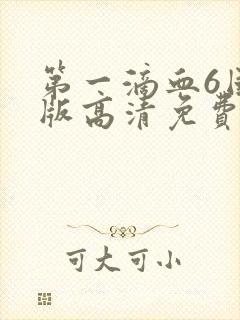 第一滴血6国
版高清免费
可大可小